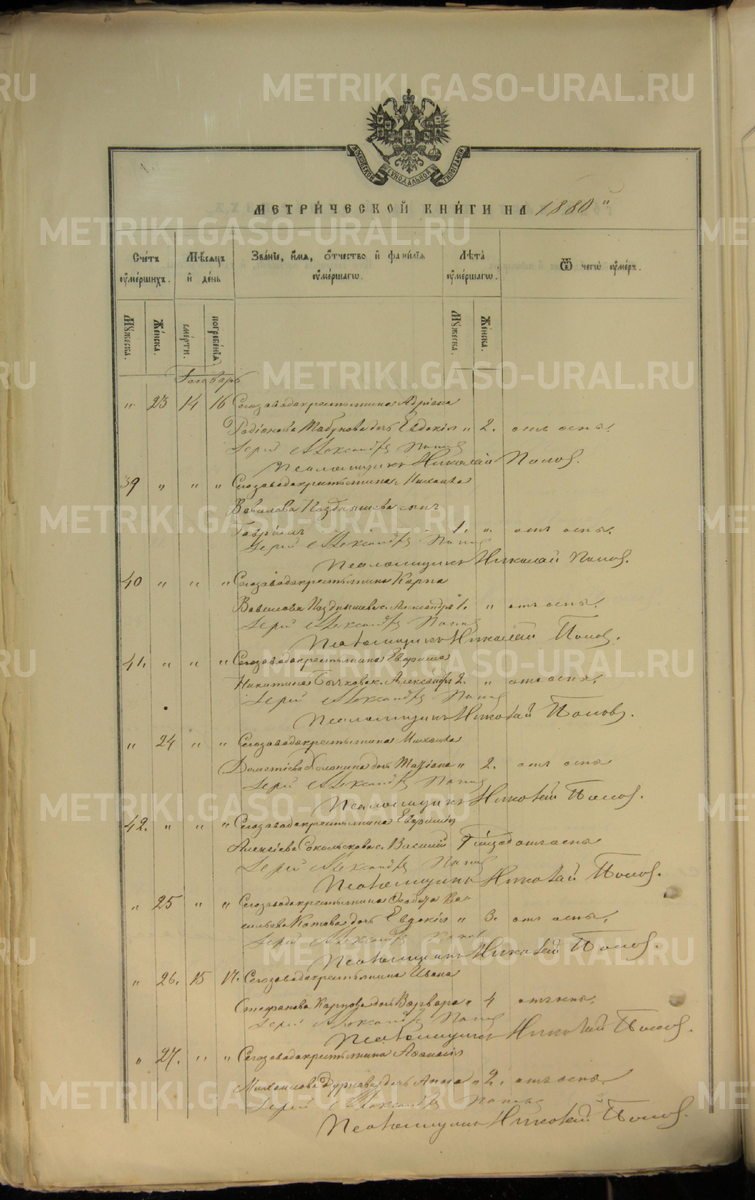 METRIKI.GASO-URAL.RU
МЕТРИ́ЧЕСКОЙ КНИ́ГИ НА 1880
Сче́тъ ᲂуме́ршихъ.
Мѣ́сяцъ и де́нь
Зва́нїе, и́мя, ѻ́тчество и фами́лїя ᲂуме́ршагѡ.
Лѣ́та ᲂуме́ршагѡ.
Ѿ чегѡ̀ ᲂу́меръ.
Мꙋ́жеска.
Же́нска.
сме́рти.
погребе́нїя
Мꙋ́жеска.
Же́нска.
Генварь
" 23 14 16 Сегозаводакрестьянина Адріана
Табукова дочь Евдокія " 2. отъ оспы.
Іерей Александръ Попов
Псаломщикъ Николай Попов.
39 " " " Сегозаводакрестьянина Михаила
Вавилова Позднышева сынъ
Гавріилъ 1. " отъ оспы.
Іерей Александръ Попов
Псаломщикъ Николай Попов.
40 " " " Сегозаводакрестьянина Карпа
Вавилова Позднышева с. Александръ 1. " отъ оспы.
Іерей Александръ Попов
Псаломщикъ Николай Попов.
41. " " " Сегозаводакрестьянина
Никитина с. Александръ 2. " отъ оспы.
Іерей Александръ Попов
Псаломщикъ Николай Поповъ.
" 24 " " Сегозаводакрестьянина Михаила
дочь Татіана " 2. отъ оспы
Іерей Александръ Попов
Псаломщикъ Николай Попов.
42. " " " Сегозаводакрестьянина
Алексѣева Сокольскова с. Василій отъ оспы
Іерей Александръ Попов
Псаломщикъ Николай Попов.
" 25 " " Сегозаводакрестьянина Ва
сильева Котова дочь Евдокія " 3. отъ оспы.
Іерей Александръ Попов
Псаломщикъ Николай Попов.
" 26. 15 17. Сегозаводакрестьянина Ивана
Стефанова Карпова дочь Варвара " 4
Іерей Александръ Попов
Псаломщикъ Николай Попов.
" 27. " " Сегозаводакрестьянина Афанасія
Михаилова Дурнова дочь Анна " 2. отъ оспы
Іерей Александръ Попов
Псаломщикъ Николай Попов.